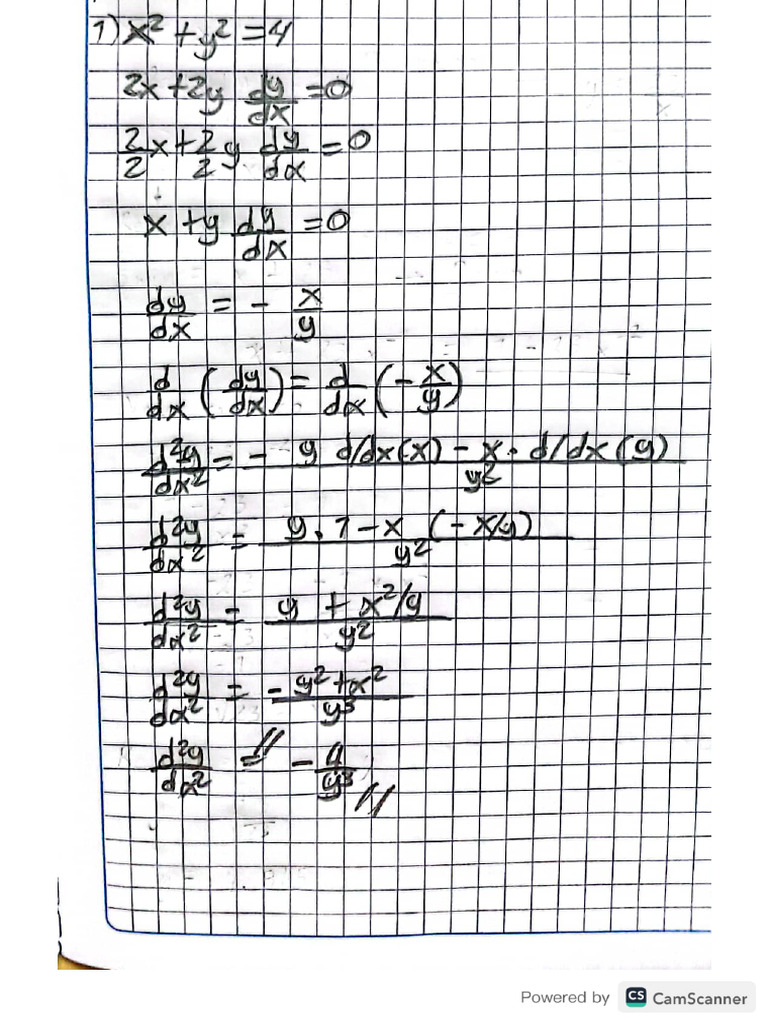 1) x² + y² = 4
2x + 2y dy/dx = 0
2/2 x + 2/2 y dy/dx = 0
x + y dy/dx = 0
dy/dx = - x/y
d/dx (dy/dx) = d/dx (- x/y)
d²y/dx² = - y d/dx(x) - x · d/dx (y) / y²
d²y/dx² = y · 1 - x (- x/y) / y²
d²y/dx² = y + x²/y / y²
d²y/dx² = - y² + x² / y³
d²y/dx² = // - 4/y³ //
Powered by CS CamScanner